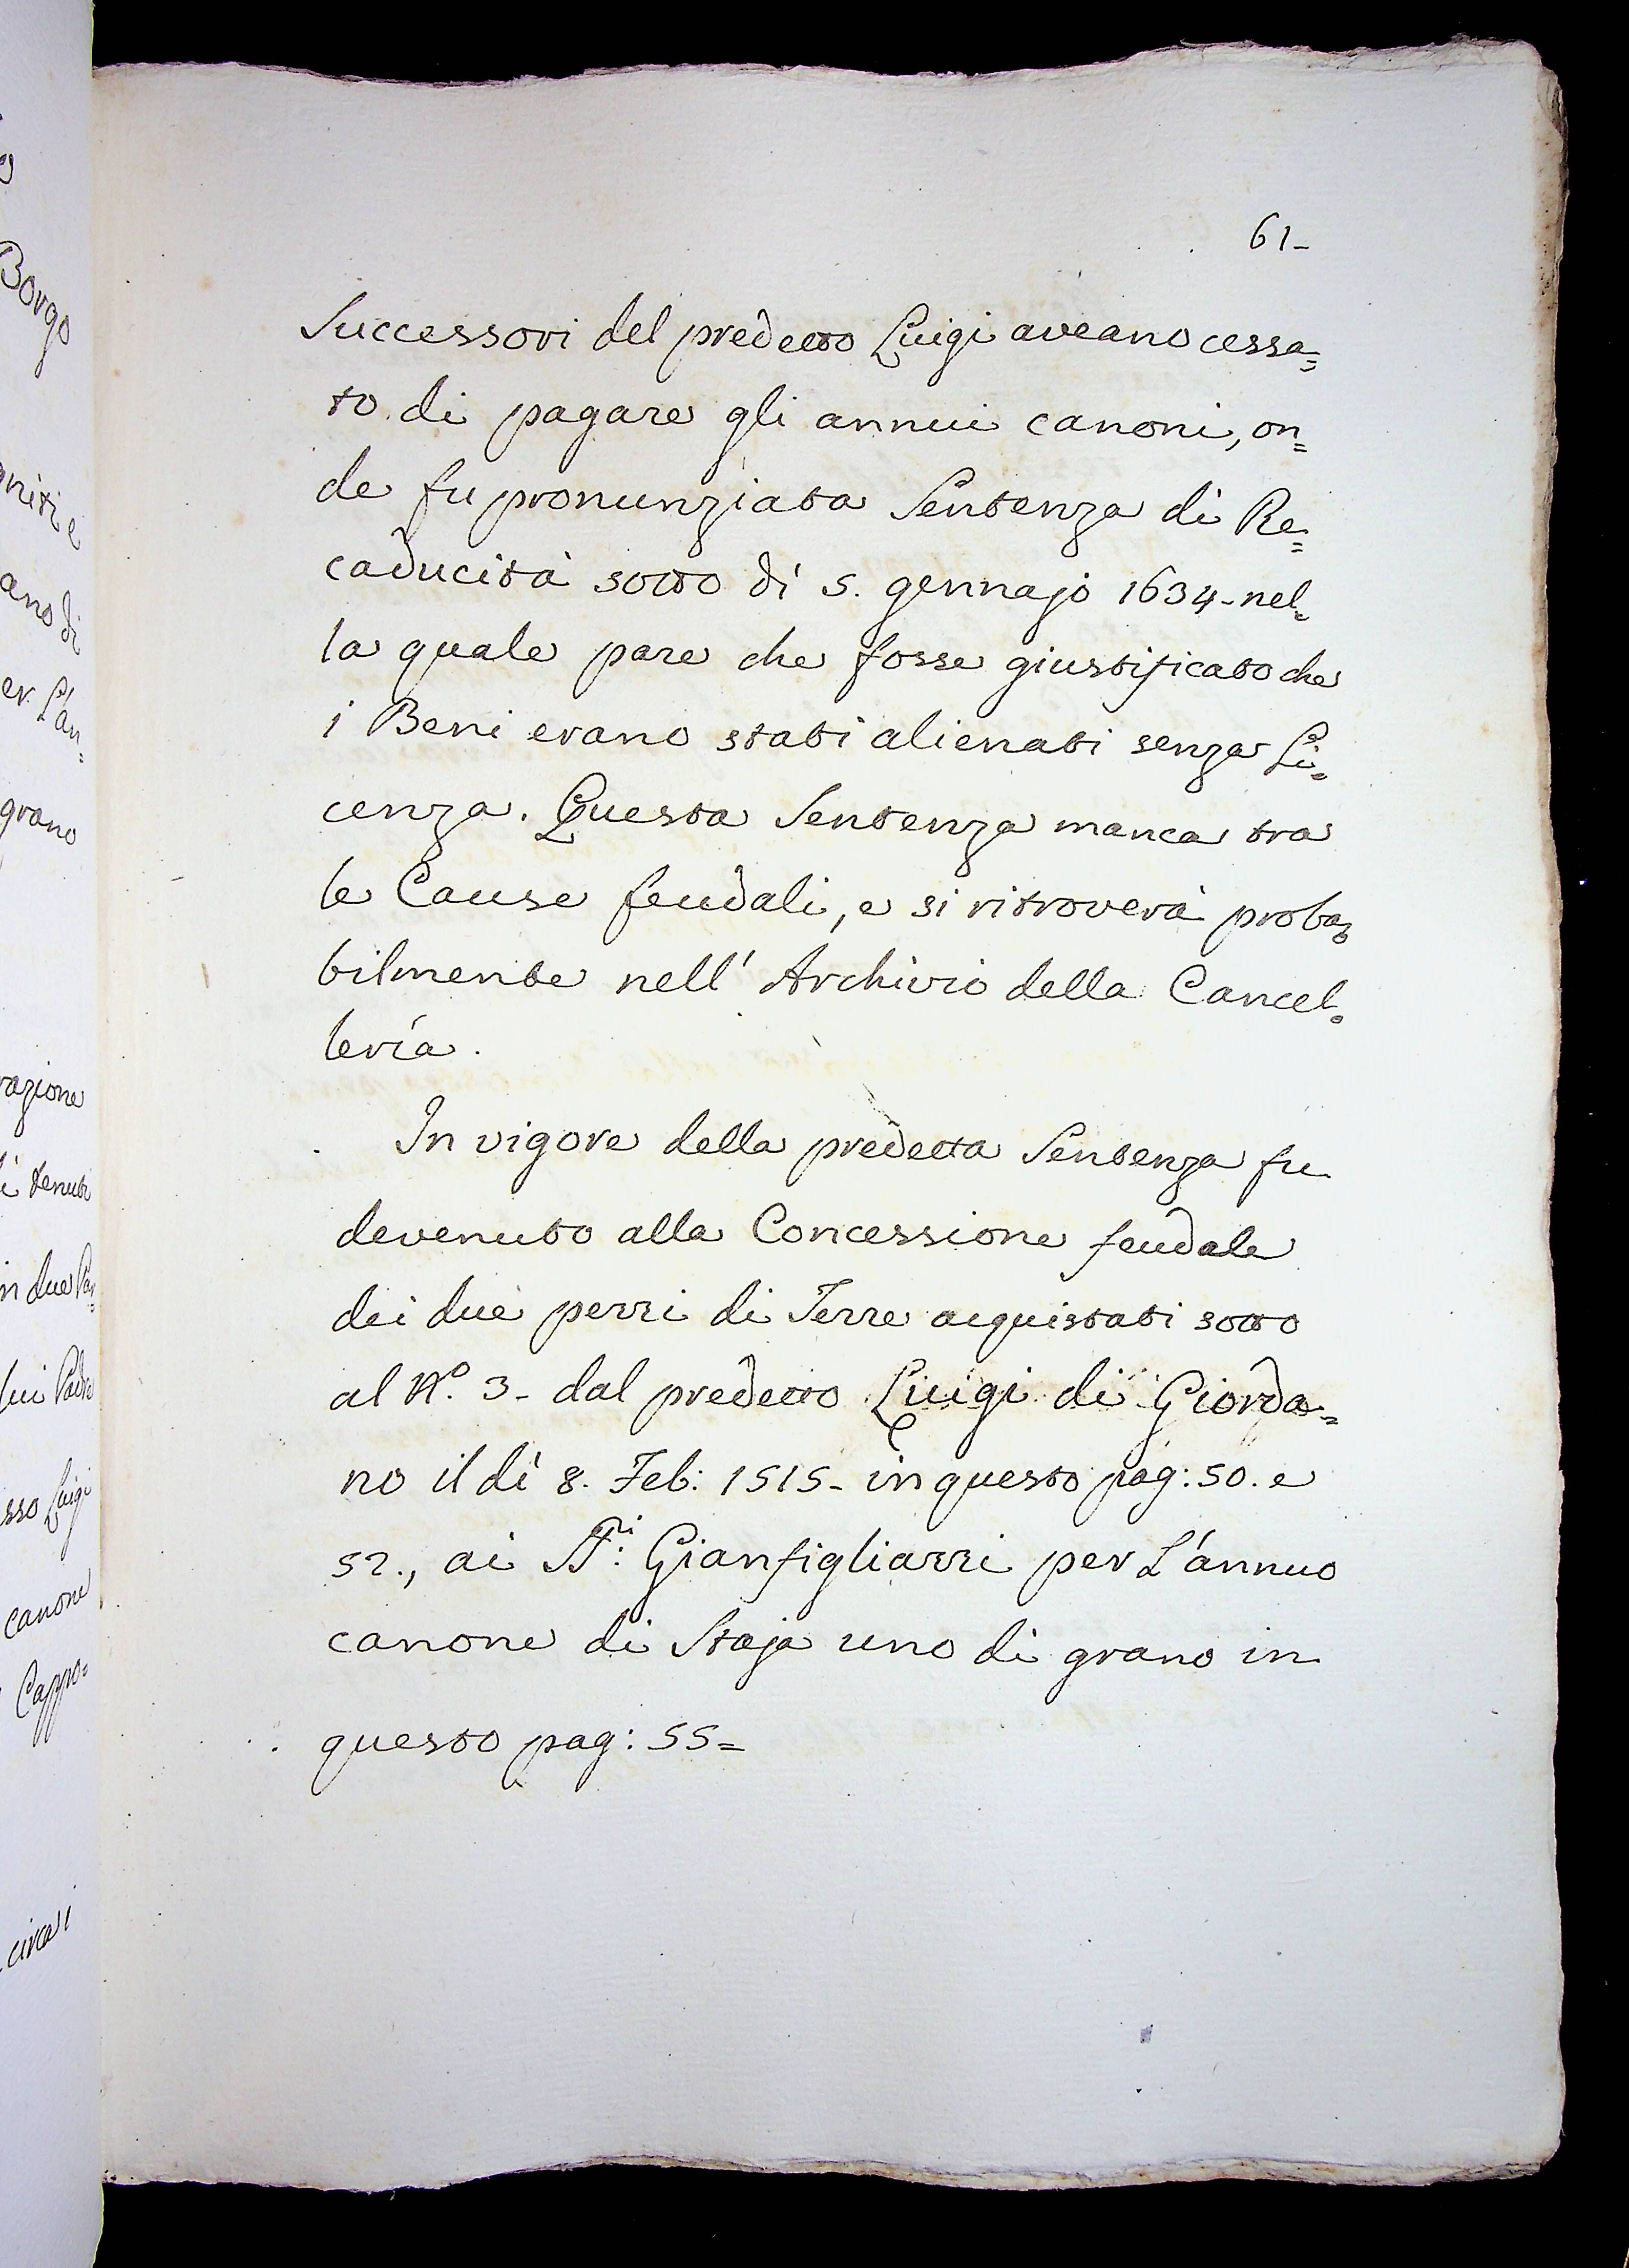 61-
Successori del predetto Luigi aveano cessa=
to di pagare gli annui canoni, on=
de fu pronunziata Sentenza di Re=
caducità sotto dì 5. gennajo 1634- nel=
la quale pare che fosse giustificato che
i Beni erano stati alienati senza Li=
cenza. Questa Sentenza manca tra
le Cause feudali, e si ritroverà proba=
bilmente nell' Archivio della Cancel=
lería.
In vigore della predetta Sentenza fu
devenuto alla Concessione feudale
dei due pezzi di Terre acquistati sotto
al N.º 3- dal predetto Luigi di Giorda=
no il dì 8. Feb: 1515- in questo pag: 50. e
52., ai Gianfigliazzi per L'annuo
canone di Staja uno di grano in
questo pag: 55=
Borgo
ano di
grano
razione
tenuti
in due
Luigi
canone
Cappo=
circa i